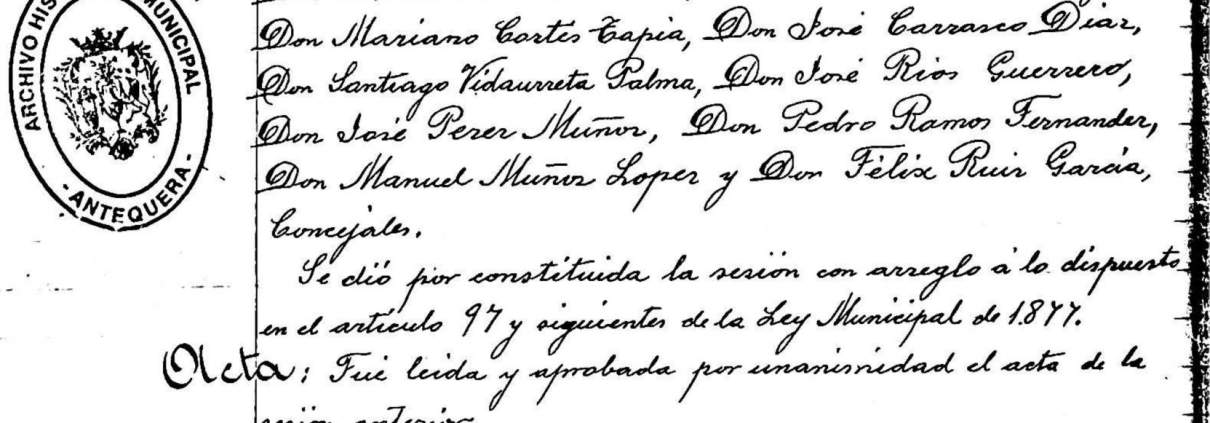 ARCHIVO HIS
MUNICIPAL
- ANTEQUERA -
Don Mariano Cortés Tapia, Don José Carrasco Díaz,
Don Santiago Vidaurreta Palma, Don José Rios Guerrero,
Don José Perez Muñoz, Don Pedro Ramos Fernandez,
Don Manuel Muñoz Lopez y Don Félix Ruiz García,
Concejales.
Se dió por constituida la sesión con arreglo á lo dispuesto
en el artículo 97 y siguientes de la Ley Municipal de 1.877.
Acta: Fué leida y aprobada por unanimidad el acta de la
sesión anterior